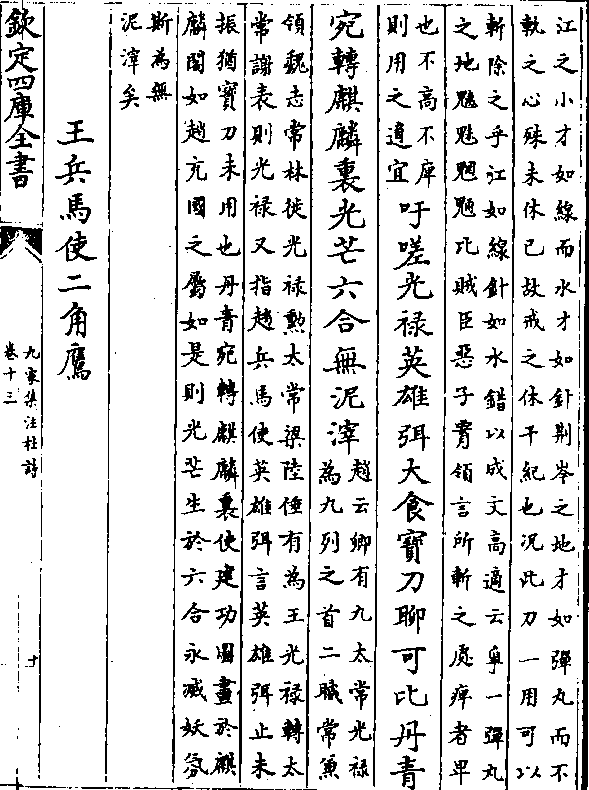 江之小才如線而水才如針荆岑之地才如彈丸而不
軌之心殊未休已故戒之休干紀也况此刀一用可以
斬除之乎江如線針如水錯以成文高適云單一彈丸
之地魑魅魍魎比賊臣惡子膏領言所斬之處痺者卑
也不高不庳
則用之適宜
吁嗟光禄英雄弭大食寳刀聊可比丹青
宛轉麒麟裏光芒六合無泥滓
趙云卿有九太常光禄
為九列之首二職常兼
領魏志常林徙光禄勲太常梁陸倕有為王光禄轉太
常謝表則光禄又指趙兵馬使英雄弭言英雄弭止未
振猶寳刀未用也丹青宛轉麒麟裏使建功圖畫於麒
麟閣如趙充國之屬如是則光芒生於六合永滅妖氛
斯為無
泥滓矣
王兵馬使二角鷹
欽定四庫全書
九家集注杜詩
卷十三
十